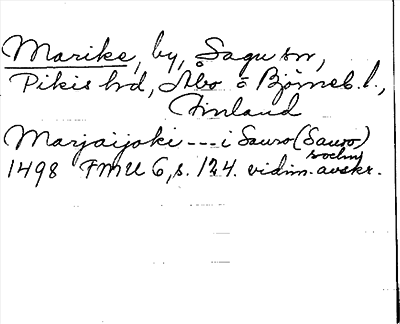 Marike, by, Sagu sn,
Pikis hd, Åbo o Björneb. l.,
Finland
Marjaijoki --- i Sauro (Sauvo)
sochn
1498 FMU 6, s. 124. vidim. avskr.